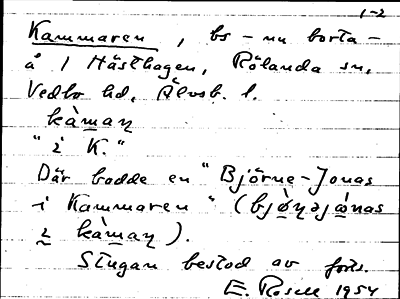 1-2
Kammaren, bs - nu borta -
å 1 Hästhagen, Rölanda sn,
Vedbo hd, Älvsb. l.
kàmaꞃ
"i K."
Där bodde en "Björne-Jonas
i Kammaren" (bjǿꞃəjònas
i kàmaꞃ).
Stugan bestod av forts.
E. Rosell 1954